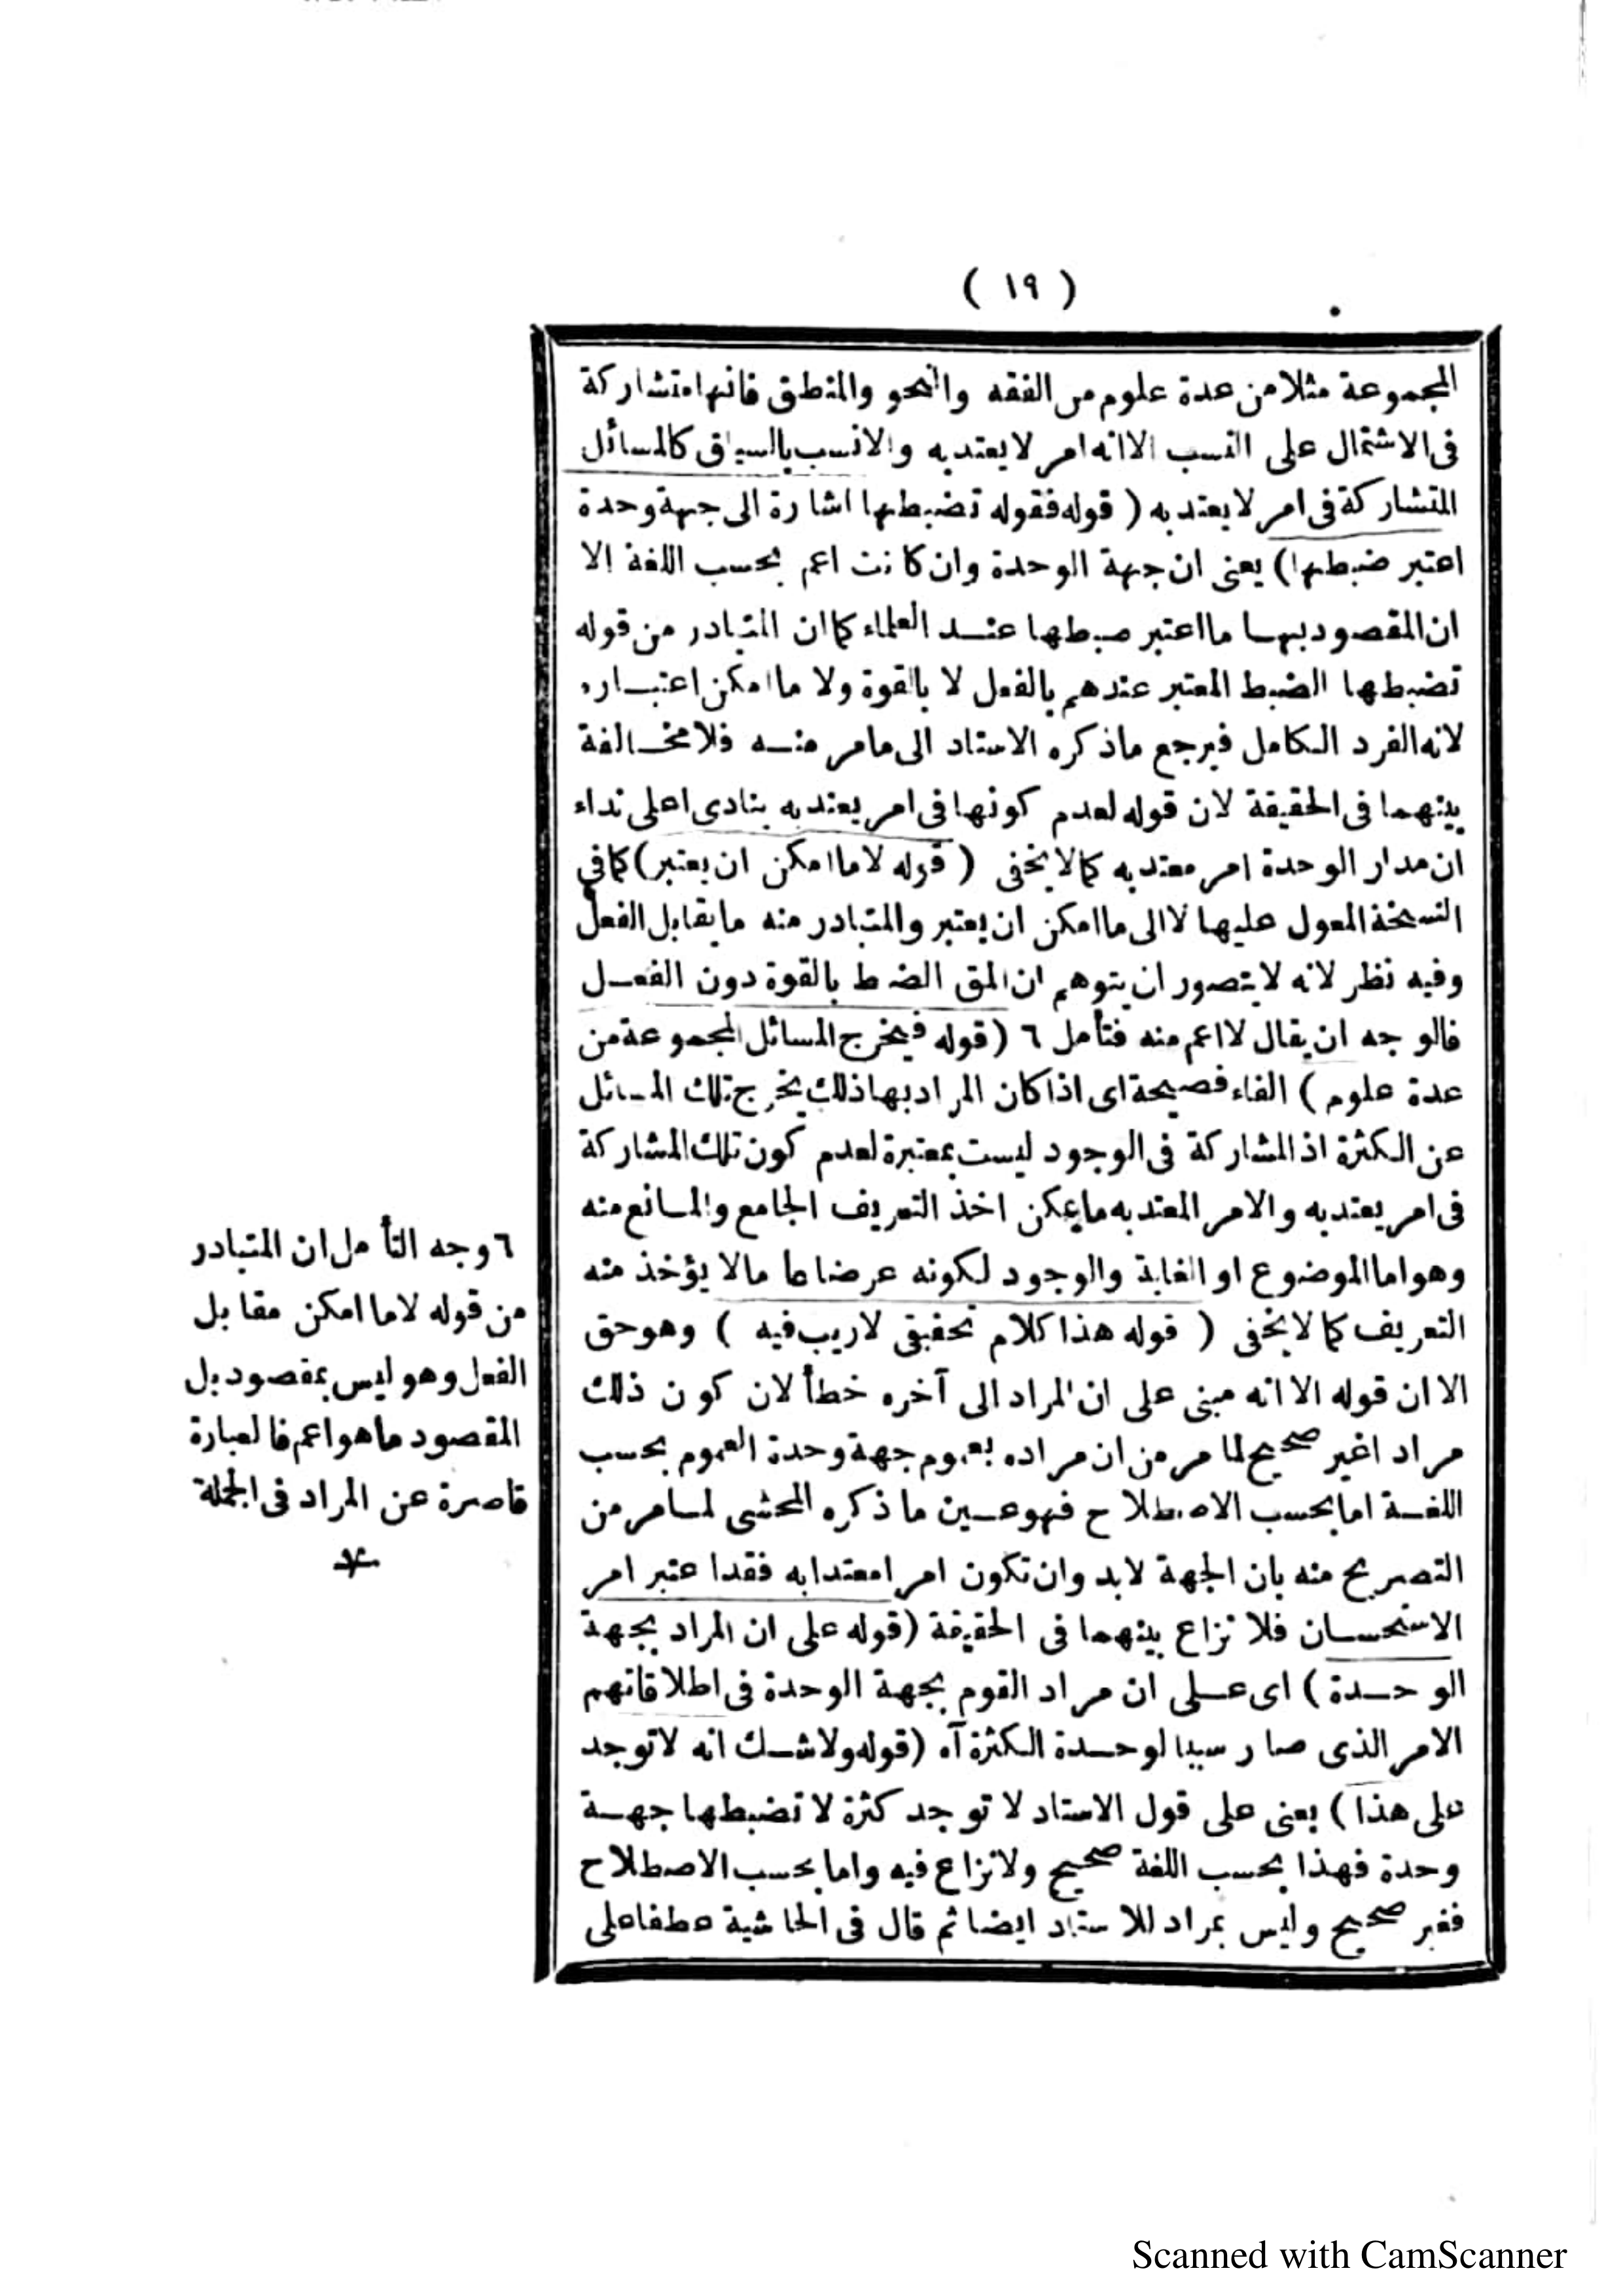 ( ١٩ )
المجموعة مثلا من عدة علوم من الفقه والنحو والمنطق فانها متشاركة
فى الاشتمال على النسب الا انه امر لا يعتد به والانسب بالسياق كالمسائل
المتشاركة فى امر لا يعتد به ( قوله فقوله تضبطها اشارة الى جهة وحدة
اعتبر ضبطها ) يعنى ان جهة الوحدة وان كانت اعم بحسب اللغة الا
ان المقصود بها ما اعتبر ضبطها عند العلماء كما ان المتبادر من قوله
تضبطها الضبط المعتبر عندهم بالفعل لا بالقوة ولا ما امكن اعتباره
لانه الفرد الكامل فيرجع ما ذكره الاستاد الى ما مر منه فلا مخالفة
بينهما فى الحقيقة لان قوله لعدم كونها فى امر يعتد به ينادى اعلى نداء
ان مدار الوحدة امر معتد به كما لا يخفى ( قوله لا ما امكن ان يعتبر ) كما فى
النسخة المعول عليها لا الى ما امكن ان يعتبر والمتبادر منه ما يقابل الفعل
وفيه نظر لانه لا يتصور ان يتوهم ان المق الضبط بالقوة دون الفعل
فالوجه ان يقال لا اعم منه فتأمل ٦ ( قوله فيخرج المسائل المجموعة من
عدة علوم ) الفاء فصيحة اى اذا كان المراد بها ذلك يخرج تلك المسائل
عن الكثرة اذ المشاركة فى الوجود ليست بمعتبرة لعدم كون تلك المشاركة
فى امر يعتد به والامر المعتد به ما يمكن اخذ التعريف الجامع والمانع منه
وهو اما الموضوع او الغاية والوجود لكونه عرضا عا ما لا يؤخذ منه
التعريف كما لا يخفى ( قوله هذا كلام تحقيقى لا ريب فيه ) وهو حق
الا ان قوله الا انه مبنى على ان المراد الى آخره خطأ لان كون ذلك
مرادا غير صحيح لما مر من ان مراده بعموم جهة وحدة العموم بحسب
اللغة اما بحسب الاصطلاح فهو عين ما ذكره المحشى لما مر من
التصريح منه بان الجهة لابد وان تكون امرا معتدا به فقد اعتبر امر
الاستحسان فلا نزاع بينهما فى الحقيقة ( قوله على ان المراد بجهة
الوحدة ) اى على ان مراد القوم بجهة الوحدة فى اطلاقاتهم
الامر الذى صار سببا لوحدة الكثرة آه ( قوله ولا شك انه لا توجد
على هذا ) يعنى على قول الاستاد لا توجد كثرة لا تضبطها جهة
وحدة فهذا بحسب اللغة صحيح ولا نزاع فيه واما بحسب الاصطلاح
فغير صحيح وليس بمراد للاستاد ايضا ثم قال فى الحاشية عطفا على
٦ وجه التأمل ان المتبادر
من قوله لا ما امكن مقابل
الفعل وهو ليس بمقصود بل
المقصود ما هو اعم فالعبارة
قاصرة عن المراد فى الجملة
Scanned with CamScanner